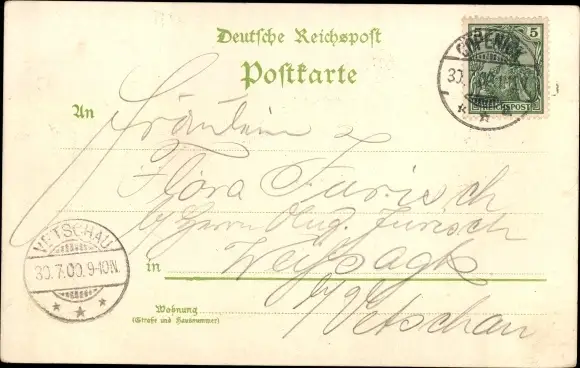 Deutsche Reichspost
Postkarte
5
REICHSPOST
CÖPENICK
30.7.00
An
Fräulein
Flora Jurisch
b/ Herrn Aug. Jurisch
in Weißagk
b/ Vetschau
Wohnung
(Straße und Hausnummer)
VETSCHAU
30.7.00.9-10N.